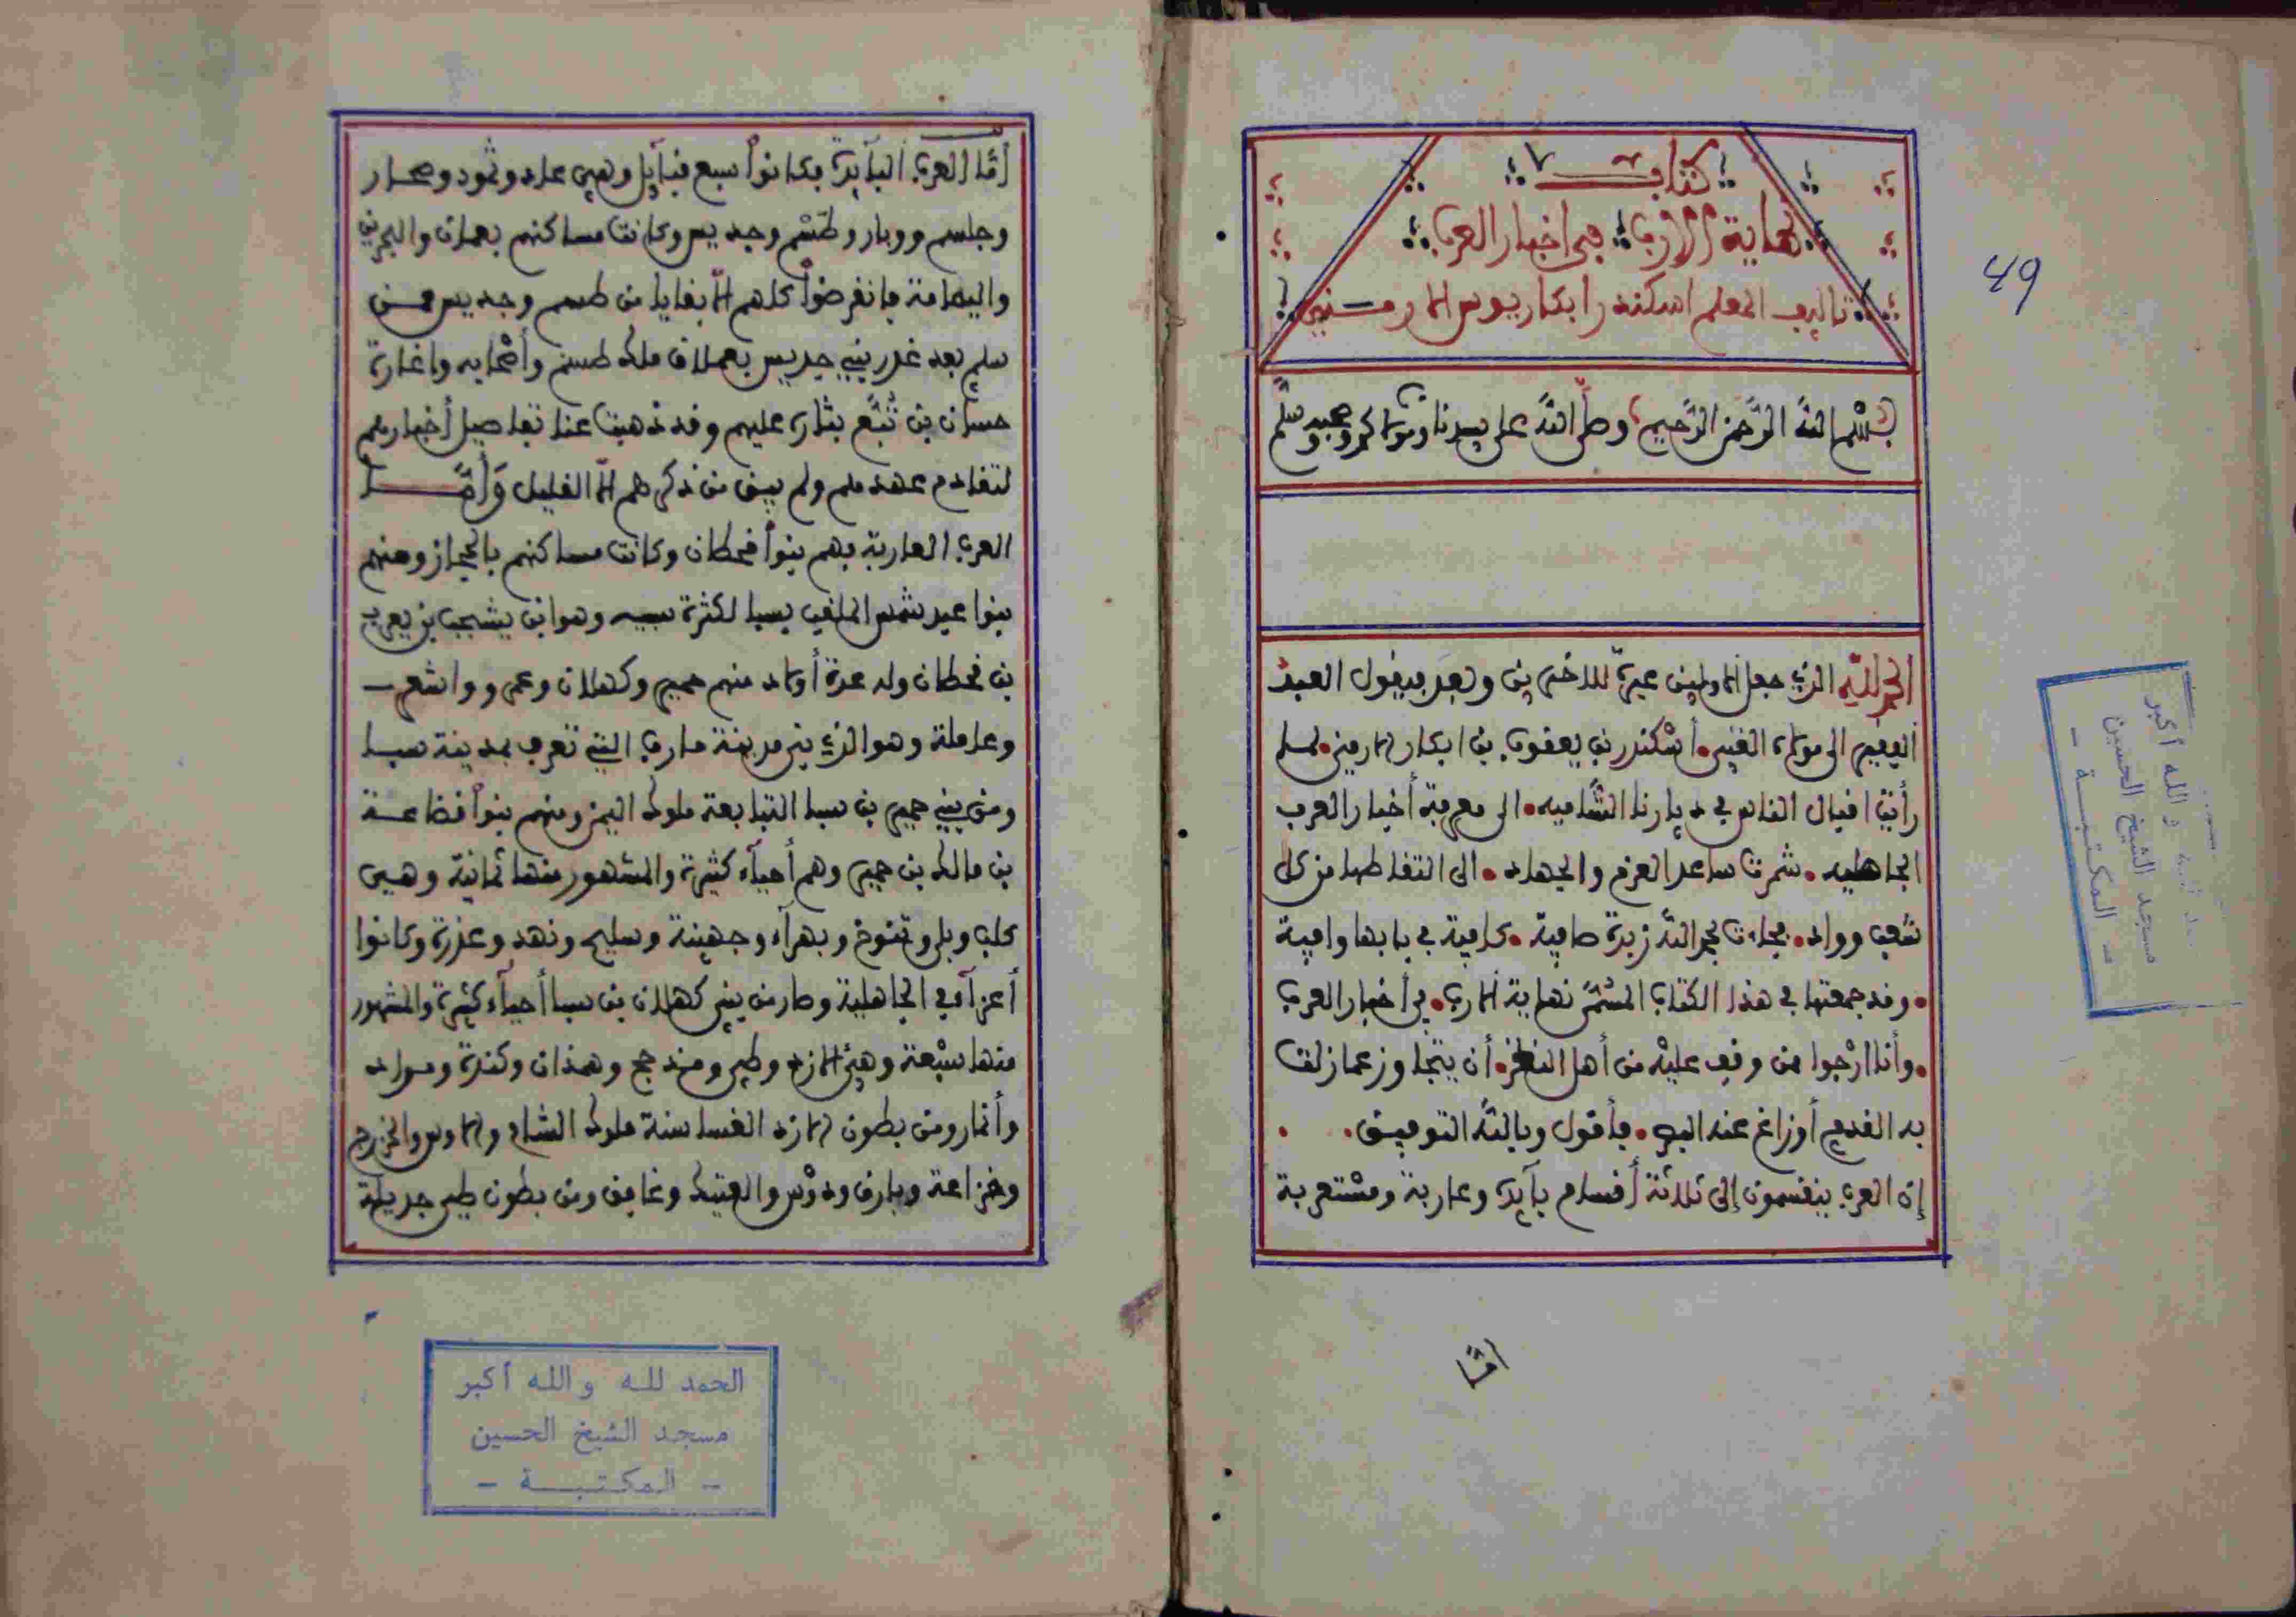 كتاب
نهاية الارب في اخبار العرب
تاليف المعلم اسكندر ابكاريوس الارمني
49
بسم الله الرحمن الرحيم وصلى الله على سيدنا ومولانا محمد وسلم
الحمد لله الذي جعل الاولين عبرة للاخرين وبعد فيقول العبد
الفقير الى مولاه الغني. أسْكندر بن يعقوب بن ابكار الارمني. لما
رأيت اقبال الناس في ديارنا الشاميه. الى معرفة أخبار العرب
الجاهليه. شمرت ساعد العزم والجهاد. الى التقاطها من كل
شعب وواد. فجاءت بحمد الله زبدة صافية. كافية في بابها وافية
. وقد جمعتها في هذا الكتاب المسمّى نهاية الارب. في أخبار العرب
. وأنا ارْجوا ممن وقف عليْه من أهل النظر. أن يتجاوز عما زلت
به القدم أو زاغ عنه البصر. فأقول وبالله التوفيق.
إن العرب ينقسمون إلى ثلاثة أقسام بآيدة وعاربة ومسْتعربة
امّا
أمّا العرب البآيدة فكانواْ سبع قبآيل وهي عاد وثمود وصحار
وجاسم ووبار وطسْم وجديس وكانت مساكنهم بعمان والبحرين
واليمامة فانقرضواْ كلهم الاّ بقايا من طسم وجديس ممن
سلم بعد غدر بني جديس بعملاق ملك طسم وأصْحابه واغارة
حسان بن تُبَّع بثاره عليهم وقد ذهبت عنا تفاصيل أخبارهم
لتقادم عهدهم ولم يبق من ذكرهم الاّ القليل وَأَمَّا
العرب العاربة فهم بنواْ قحطان وكانت مساكنهم بالحجاز ومنهم
بنوا عبد شمس الملقب بسبا لكثرة سبيه وهو ابن يشجب بن يعرب
بن قحطان وله عدة أولاد منهم حمير وكهلان وعمرو واشعر
وعاملة وهو الذي بنى مدينة مارب التي تعرف بمدينة سبا
ومن بني حمير بن سبا التبابعة ملوك اليمن ومنهم بنواْ قضاعة
بن مالك بن حمير وهم أحيآء كثيرة والمشهور منها ثمانية وهي
كلب وبلي وتنوخ وبهرآء وجهينة وسليح ونهد وعذرة وكانوا
أعزآء في الجاهلية وصار من بني كهلان بن سبا أحيآء كثيرة والمشهور
منها سبْعة وهيْ الازد وطي ومذحج وهمذان وكندة ومراد
وأنمار ومن بطون الازد الغساسنة ملوك الشام والاوس والخزرج
وخزاعة وبارق ودوْس والعتيك وغافق ومن بطون طي جديلة
الحمد لله والله أكبر
مسجد الشيخ الحسين
- المكتبة -
والله أكبر
مسجد الشيخ الحسين
- المكتبة -